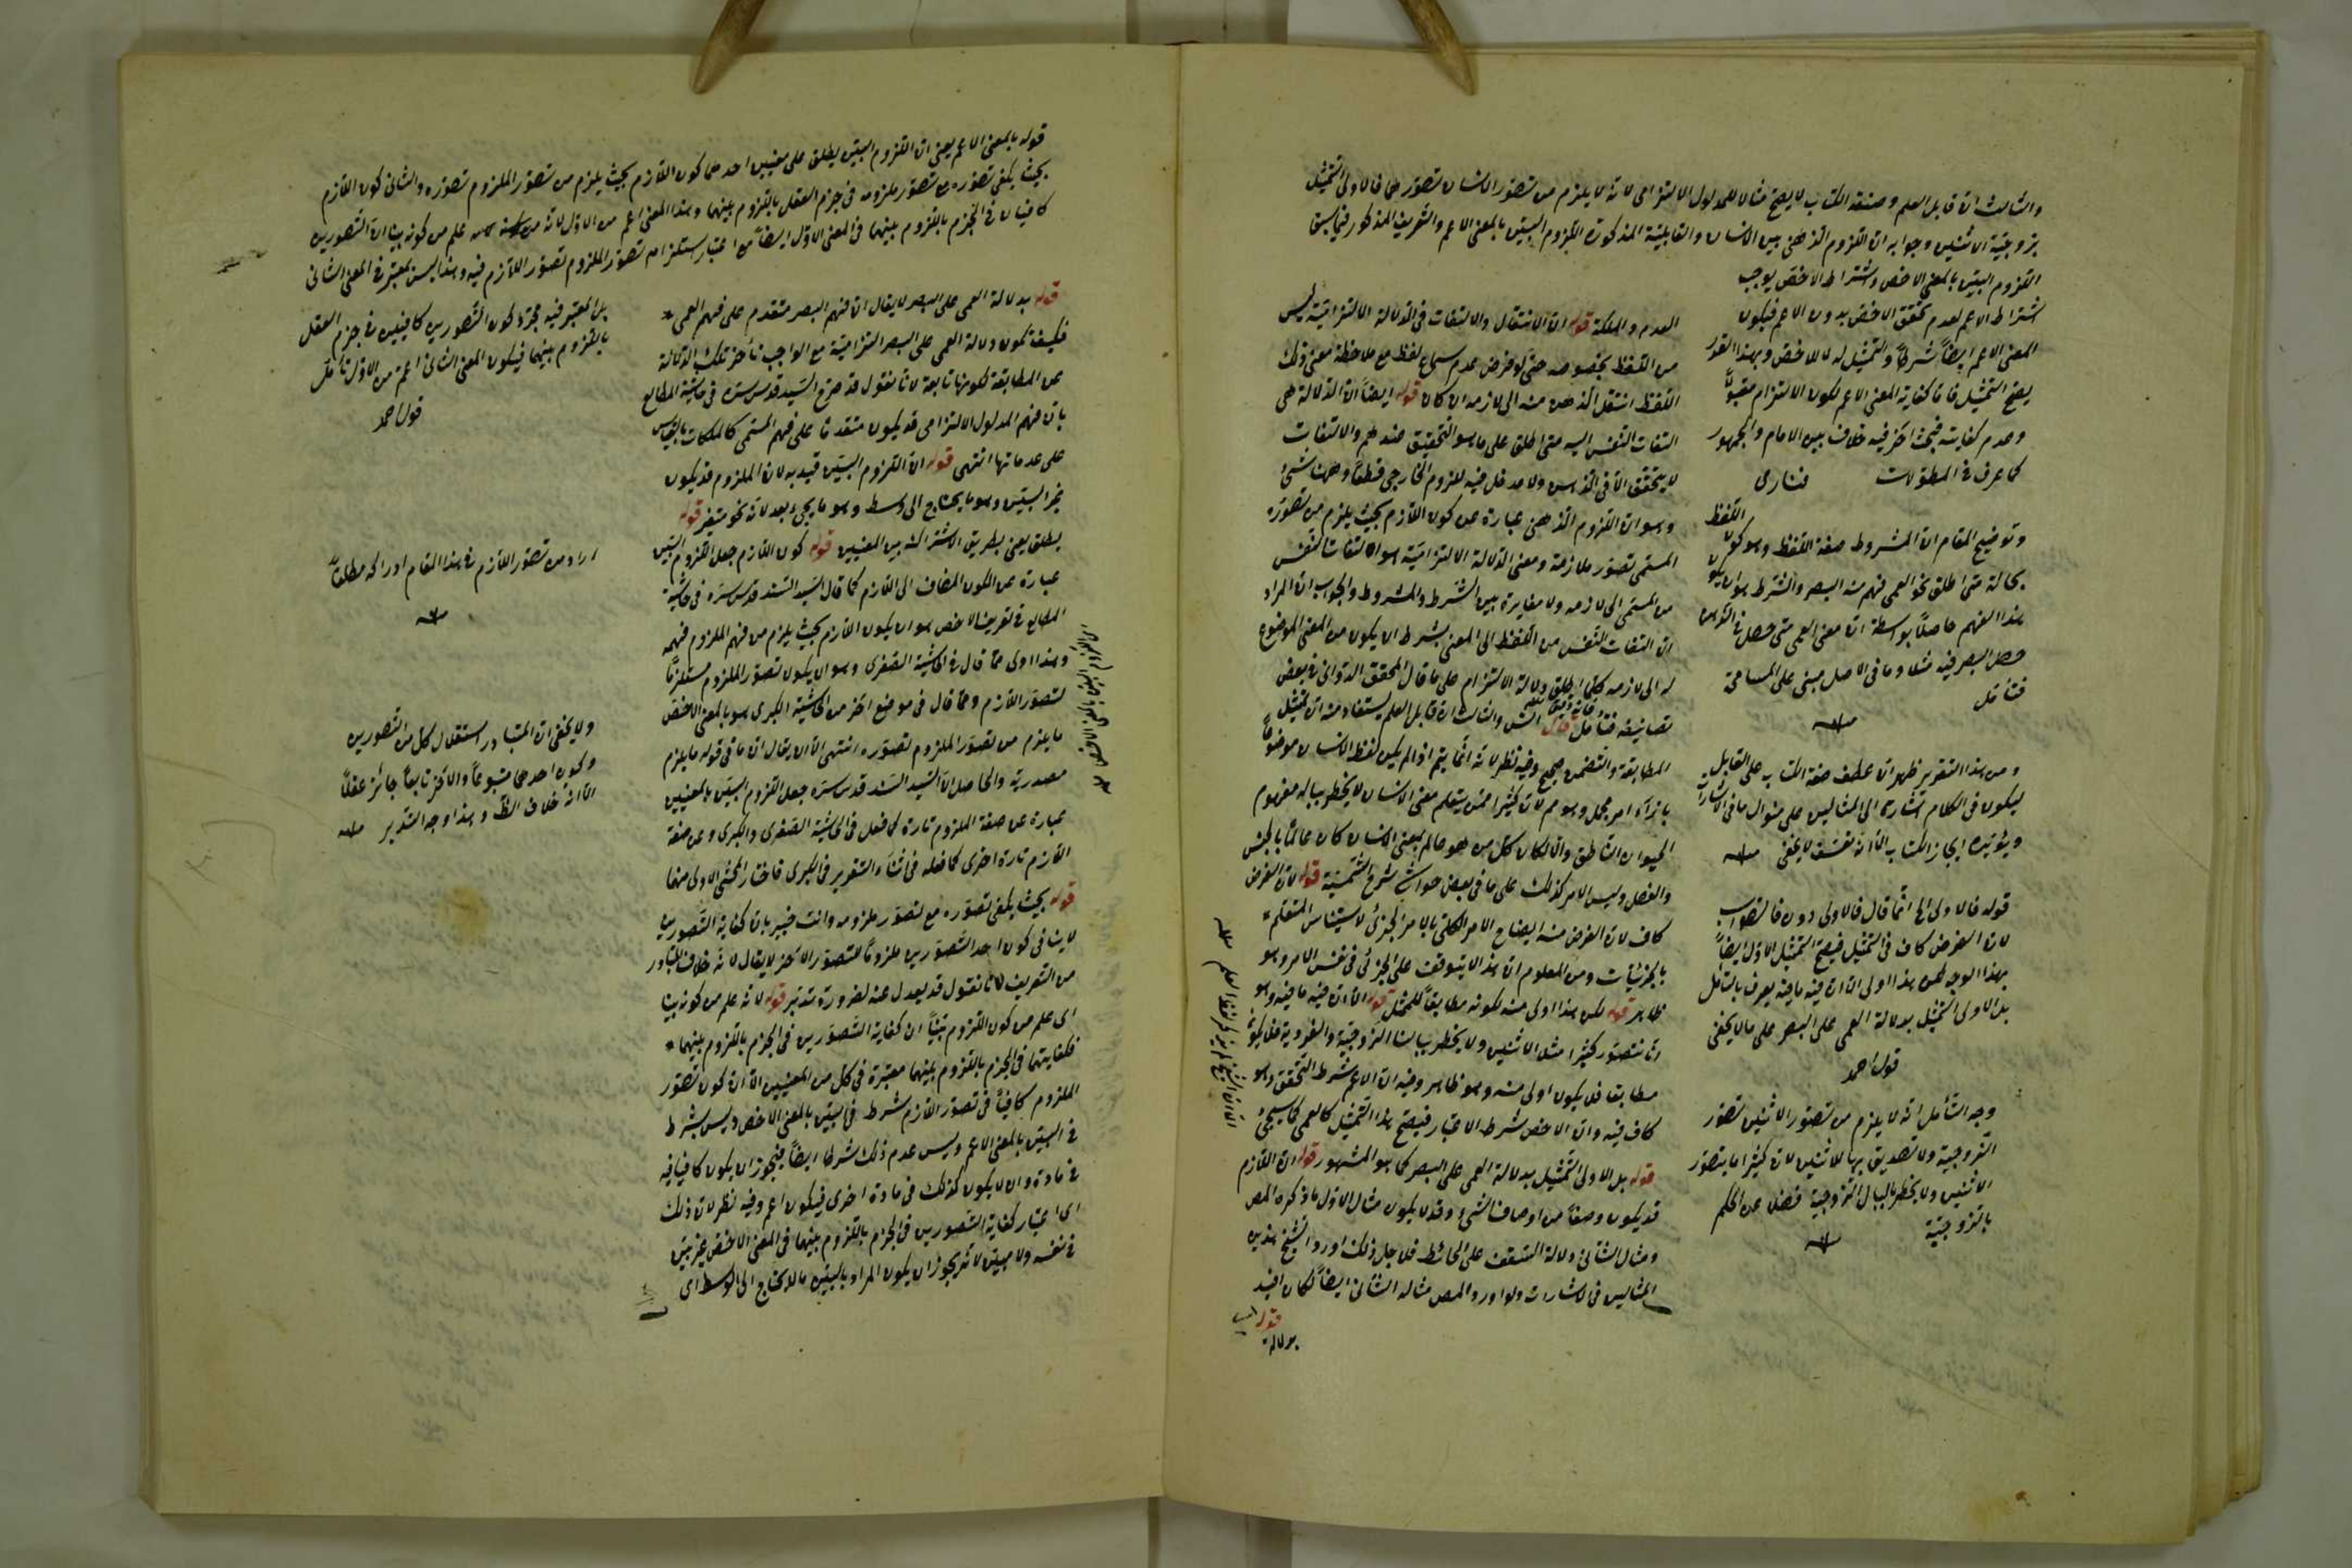 والثالث ان قابل العلم وصنعة الكتابة لا يصح مثالا للمدلول الالتزامى لانه لا يلزم من تصور الانسان تصورهما فالاولى التمثيل
بزوجية الاثنين وجوابه ان اللزوم الذهنى بين الانسان والقابلية المذكورة اللزوم البين بالمعنى الاعم والتعريف المذكور فيما سبق
اللزوم البين بالمعنى الاخص واشتراط الاخص يوجب
اشتراط الاعم لعدم تحقق الاخص بدون الاعم فيكون
المعنى الاعم ايضاً شرطاً والتمثيل له لا للاخص وبهذا القدر
يصح التمثيل فاما كفاية المعنى الاعم لكون الالتزام مقبولاً
وعدم كفايته فبحث آخر فيه خلاف بين الامام والجمهور
كما عرف فى المطولات فنارى
وتوضيح المقام ان المشروط صفة اللفظ وهو كون اللفظ
بحالة متى اطلق نحو العمى فهم منه البصر والشرط هو ان يكون
هذا الفهم حاصلاً بواسطة ان معنى العمى متى حصل فى الذهن
حصل البصر فيه مثلا وما فى الاصل مبنى على المسامحة
فتأمل
منه
ومن هذا التقرير ظهر ان عطف صنعة الكتابة على القابل
ليكون فى الكلام اشارة الى المثالين على منوال ما فى الاشارات
ويؤيده ايجاز الكتاب الا انه تعسف لا يخفى منه
قوله فالاولى الخ انما قال فالاولى دون فالصواب
لان الفرض كاف فى التمثيل فيصح التمثيل الاول ايضاً
بهذا الوجه لكن هذا اولى الا ان فيه ما فيه يعرف بالتأمل
بل الاولى التمثيل بدلالة العمى على البصر على ما لا يخفى
قول احمد
وجه التأمل انه لا يلزم من تصور الاثنين تصور
الزوجية ولا تصديق بها للاثنين لان كثيرا ما يتصور
الاثنين ولا يخطر بالبال الزوجية فضلا عن الحكم
بالزوجية
منه
العدم والملكة قوله ان الانتقال والالتفات فى الدلالة الالتزامية ليس
من اللفظ بخصوصه حتى لو فرض عدم سماع لفظ مع ملاحظة معنى ذلك
اللفظ انتقل الذهن منه الى لازمه ان كان قوله ايضاً ان الدلالة هى
التفات النفس اليه متى اطلق على ما هو التحقيق عندهم والالتفات
لا يتحقق الا فى الذهن ولا مدخل فيه للزوم الخارجى قطعاً وههنا شئ
وهو ان اللزوم الذهنى عبارة عن كون اللازم بحيث يلزم من تصوره
المسمى تصور ملازمة ومعنى الدلالة الالتزامية هو التفات النفس
من المسمى الى لازمه ولا مغايرة بين الشرط والمشروط والجواب ان المراد
ان التفات النفس من اللفظ الى المعنى بشرط ان يكون من المعنى الموضوع
له الى لازمه كلما اطلق دلالة الالتزام على ما قال المحقق الدوانى فى بعض
تصانيفه فتأمل قال الش والثالث ان قابل العلم يستفاد منه ان تمثيل
المطابقة والتضمن صحيح وفيه نظر لانه انما يتم اذا لم يكن لفظ الانسان موضوعاً
بازآء امر مجمل وهو مم لان كثيرا ممن يتعلم معنى الانسان لا يخطر بباله مفهوم
الحيوان الناطق والا لكان كل من هو عالم بمعنى الانسان كان عالماً بالجنس
والفصل وليس الامر كذلك على ما فى بعض حواشى شرح الشمسية قوله لان الفرض
كاف لان الغرض منه ايضاح الامر الكلى بالامر الجزئى لاستيناس المتعلم
بالجزئيات ومن المعلوم ان هذا لا يتوقف على الجزئى فى نفس الامر وهو
ظاهر قوله لكن هذا اولى منه لكونه مطابقاً للممثل قوله الا ان فيه ما فيه وهو
انا نتصور كثيرا مثل الاثنين ولا يخطر ببالنا الزوجية والفردية فلا يكون
مطابقا فلا يكون اولى منه وهو ظاهر وفيه ان الاعم شرط التحقق وهو
كاف فيه وان الاخص شرط الاعتبار فيصح هذا التمثيل كالعمى كما سيجئ
قوله بل الاولى التمثيل بدلالة العمى على البصر كما هو المشهور قوله ان اللازم
قد يكون وصفاً من اوصاف الشئ وقد لا يكون مثال الاول ما ذكره المص
ومثال الثانى دلالة السقف على الحائط فلاجل ذلك اورد الشيخ هذين
المثالين فى الاشارات ولو اورد المص مثاله الثانى ايضاً لكان افيد
قوله
بدلالة
قوله بالمعنى الاعم يعنى ان اللزوم البين يطلق على معنيين احدهما كون اللازم بحيث يلزم من تصور الملزوم تصوره والثانى كون اللازم
بحيث يكفى تصوره مع تصور ملزومه فى جزم العقل باللزوم بينهما وهذا المعنى اعم من الاول لانه علم من كونه بينا ان التصورين
كافيان فى الجزم باللزوم بينهما فى المعنى الاول ايضاً مع اعتبار استلزام تصور الملزوم تصور اللازم فيه وهذا ليس بمعتبر فى المعنى الثانى
بل المعتبر فيه مجرد كون التصورين كافيين فى جزم العقل
باللزوم بينهما فيكون المعنى الثانى اعم من الاول تأمل
قول احمد
اراد من تصور اللازم فى هذا المقام ادراكه مطلقاً
منه
ولا يخفى ان المتبادر استقلال كل من التصورين
وكون احدهما متبوعاً والآخر تابعاً جائز عقلاً
الا انه خلاف الظ وهذا وجه التدبر منه
قوله بدلالة العمى على البصر لا يقال ان فهم البصر متقدم على فهم العمى
فكيف تكون دلالة العمى على البصر التزامية مع الواجب تأخر تلك الدلالة
عن المطابقة لكونها تابعة لانا نقول قد صرح السيد قدس سره فى حاشية المطالع
بان فهم المدلول الالتزامى قد يكون متقدما على فهم المسمى كالملكات بالقياس
على عدماتها انتهى قوله ان اللزوم البين قيد به لان الملزوم قد يكون
غير البين وهو ما يحتاج الى وسط وهو ما يجئ بعد لانه نحو متغير قوله
يطلق يعنى بطريق الاشتراك بين المعنيين قوله كون اللازم جعل اللزوم البين
عبارة عن الكون المضاف الى اللازم كما قال السيد السند قدس سره فى حاشية
المطالع فى تعريف الاخص هو ان يكون اللازم بحيث يلزم من فهم الملزوم فهمه
وهذا اولى مما قال فى الحاشية الصغرى وهو ان يكون تصور الملزوم مستلزماً
لتصور اللازم ومما قال فى موضع آخر من الحاشية الكبرى هو بالمعنى الاخص
ما يلزم من تصور الملزوم تصوره انتهى الا ان يقال ان ما فى قوله ما يلزم
مصدرية والحاصل ان السيد السند قدس سره جعل اللزوم البين بالمعنيين
عبارة عن صفة الملزوم تارة كما فعل فى الحاشية الصغرى والكبرى وعن صفة
اللازم تارة اخرى كما فعله فى اثناء التقرير فى الكبرى فاختار المحشى الاولى منهما
قوله بحيث يكفى تصوره مع تصور ملزومه وانت خبير بان كفاية التصورين
لا ينافى كون احد التصورين ملزوماً للتصور الآخر لا يقال لانه خلاف المتبادر
من التعريف لانا نقول قد يعدل عنه لضرورة تدبر قوله لانه علم من كونه بينا
اى علم من كون اللزوم بيناً ان كفاية التصورين فى الجزم باللزوم بينهما
فكفايتهما فى الجزم باللزوم بينهما معتبرة فى كل من المعنيين الا ان كون تصور
الملزوم كافياً فى تصور اللازم شرط فى البين بالمعنى الاخص وليس بشرط
فى البين بالمعنى الاعم وليس عدم ذلك شرطا ايضاً فيجوز ان يكون كافيا فيه
فى مادة وان لا يكون كذلك فى مادة اخرى فيكون اعم وفيه نظر لان ذلك
اى اعتبار كفاية التصورين فى الجزم باللزوم بينهما فى المعنى الاخص غير بين
فى نفسه ولا مبين لانه يجوز ان يكون المراد بالبين ما لا يحتاج الى الوسط اى